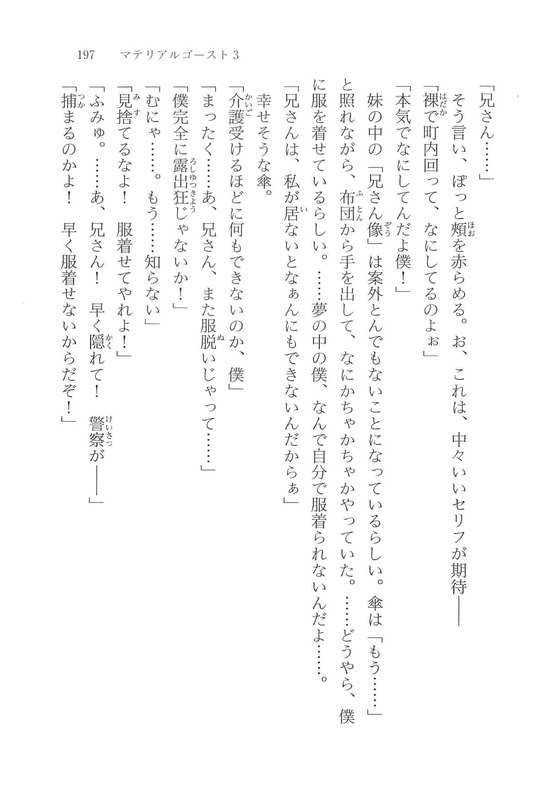 197　マテリアルゴースト3
「兄さん……」
　そう言い、ぽっと頬を赤らめる。お、これは、中々いいセリフが期待――
「裸で町内回って、なにしてるのよぉ」
「本気でなにしてんだよ僕！」
　妹の中の「兄さん像」は案外とんでもないことになっているらしい。傘は「もう……」
と照れながら、布団から手を出して、なにかちゃかちゃかやっていた。……どうやら、僕
に服を着せているらしい。……夢の中の僕、なんで自分で服着られないんだよ……。
「兄さんは、私が居ないとなぁんにもできないんだからぁ」
　幸せそうな傘。
「介護受けるほどに何もできないのか、僕」
「まったく……あ、兄さん、また服脱いじゃって……」
「僕完全に露出狂じゃないか！」
「むにゃ……。もう……知らない」
「見捨てるなよ！　服着せてやれよ！」
「ふみゅ。……あ、兄さん！　早く隠れて！　警察が――」
「捕まるのかよ！　早く服着せないからだぞ！」